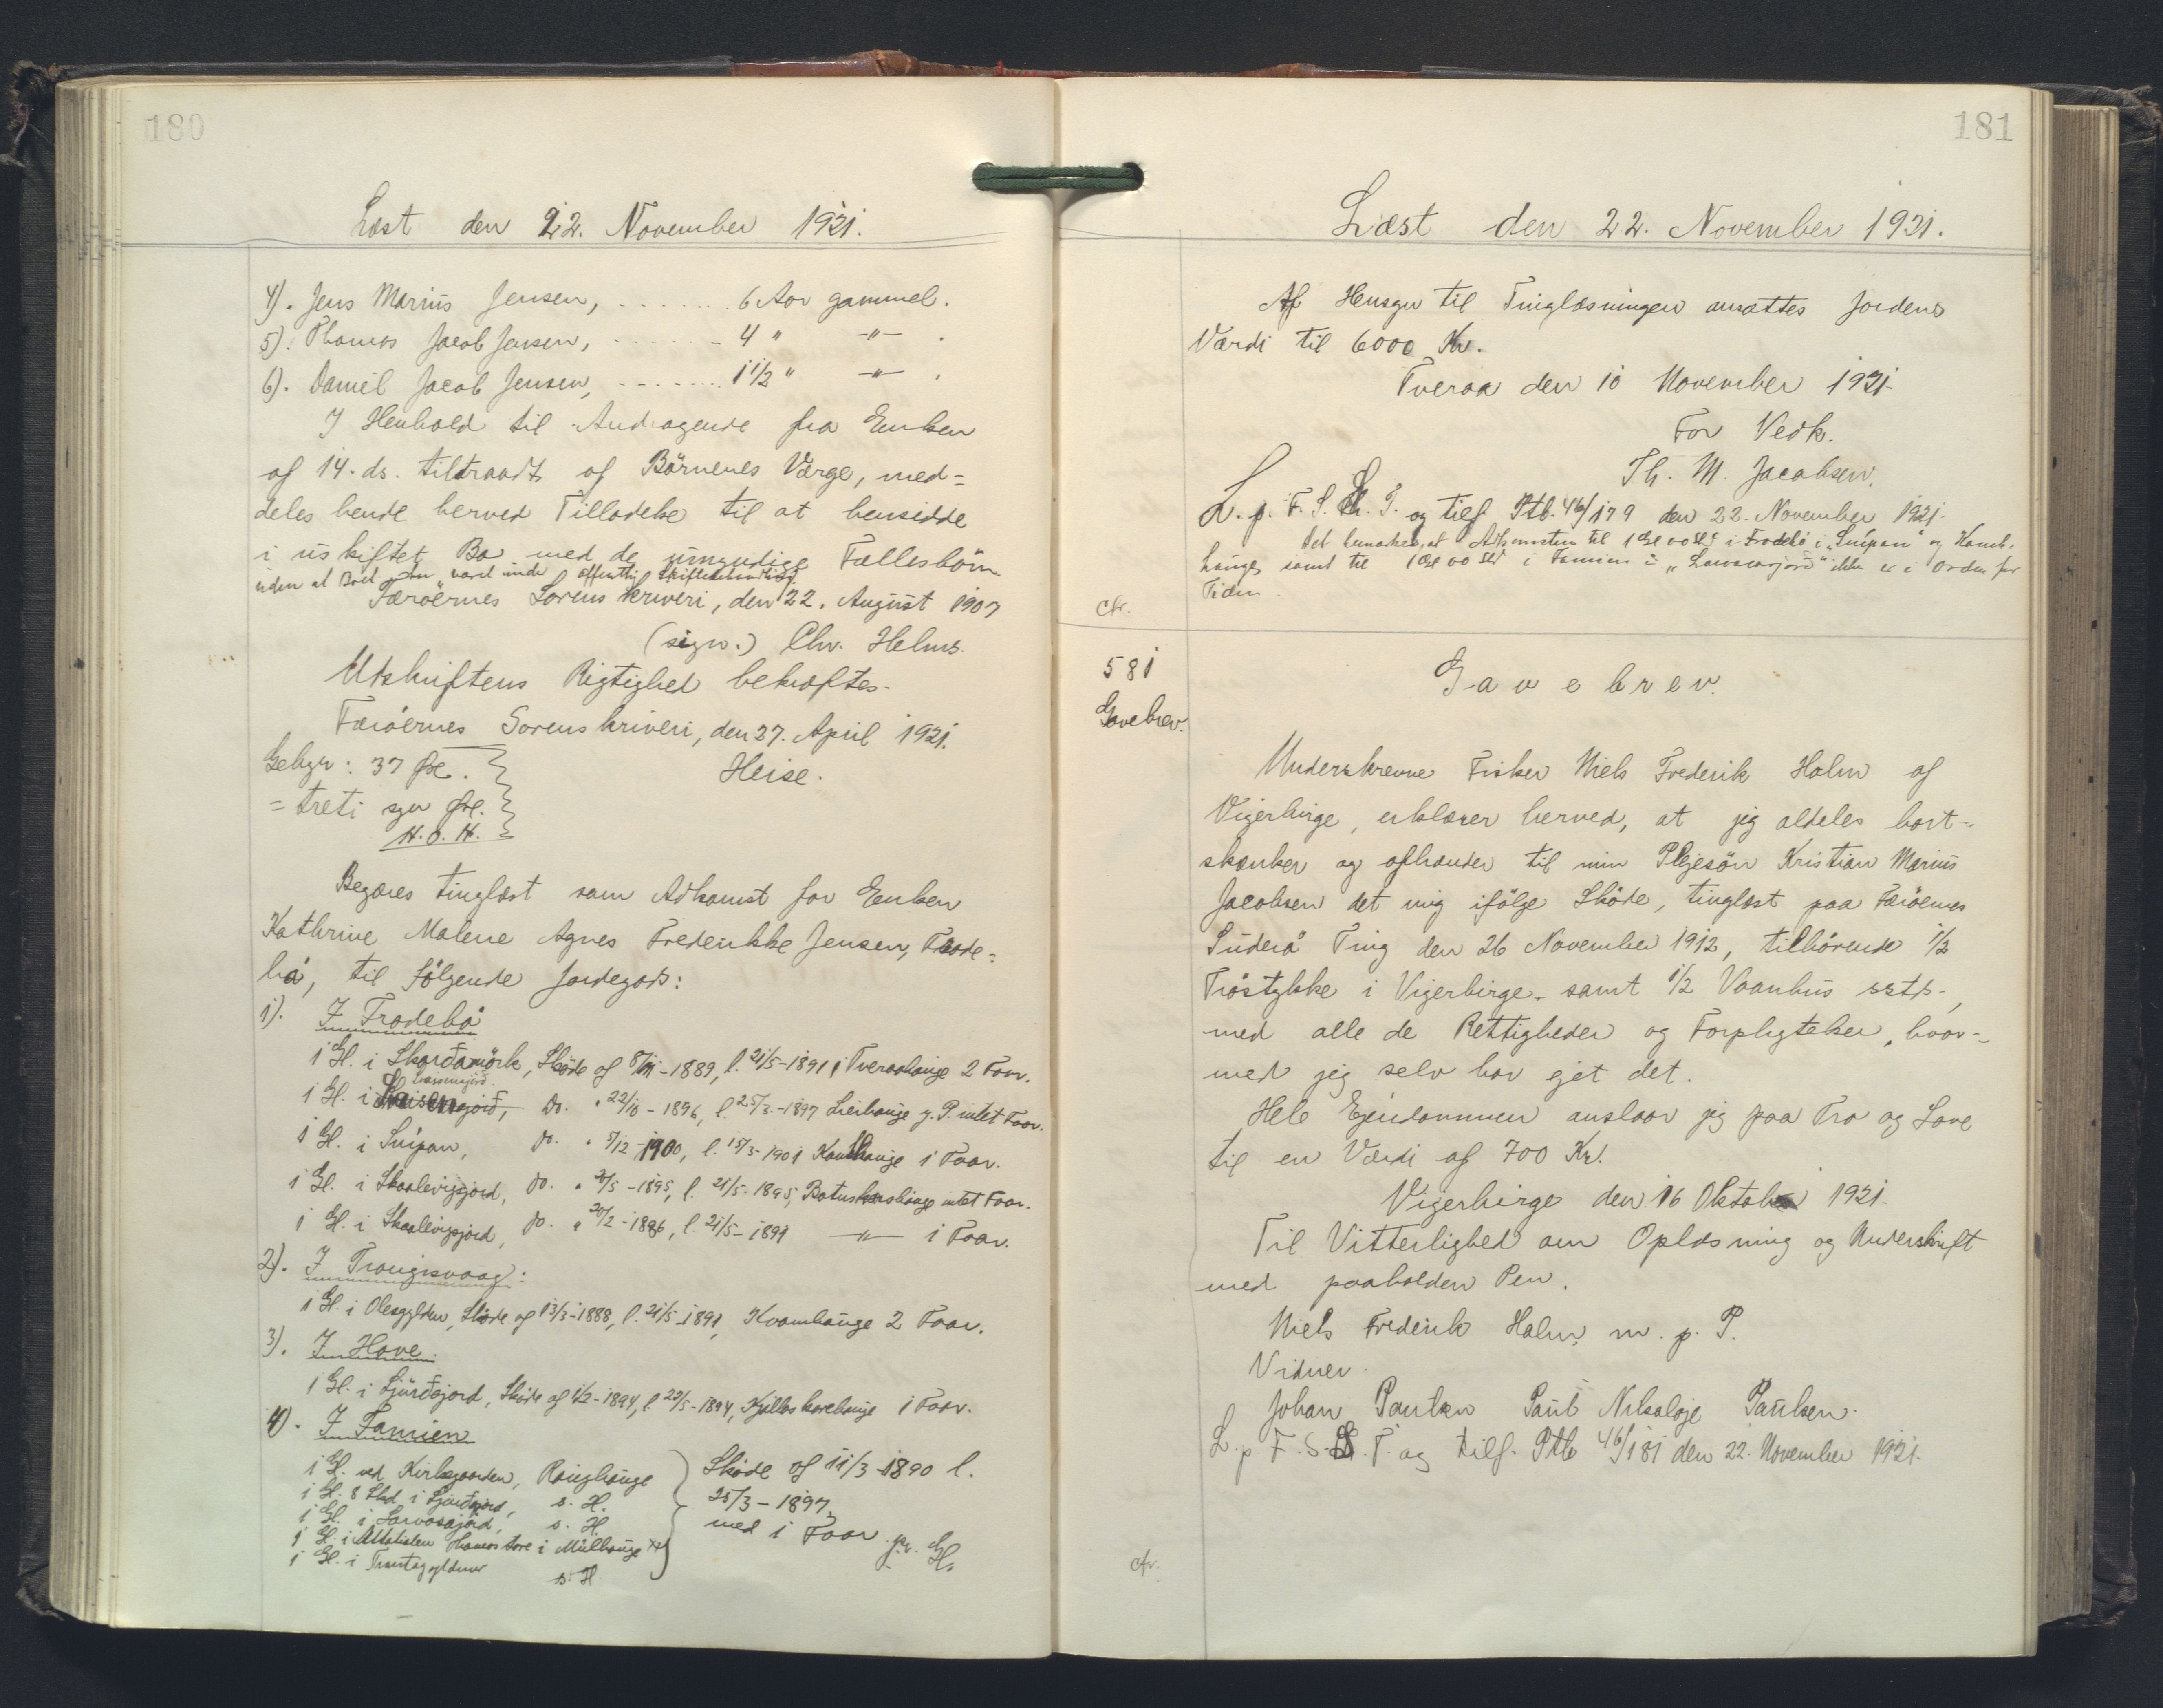 180
Læst den 22. November 1921.
4). Jens Marius Jensen, ....... 6 Aar gammel.
5). Thomas Jacob Jensen, ....... 4 " —"— .
6). Daniel Jacob Jensen, ....... 1 1/2 " —"— .
I Henhold til Andragende fra Enken
af 14. ds. tiltraadt af Börnenes Værge, med=
deles hende herved Tilladelse til at hensidde
i uskiftet Bo med de umyndige Fællesbörn
uden at Boet har været under offentlig Skiftebehandling.
Færøernes Sorenskriveri, den 22. August 1907
(sign.) Chr. Helms.
Udskriftens Rigtighed bekræftes.
Færöernes Sorenskriveri, den 27. April 1921.
Gebyr: 37 Øre.
Heise.
= treti syv Øre.
H. O. H.
Begæres tinglæst som Adkomst for Enken
Kathrine Malene Agnes Frederikke Jensen, Frode=
bö, til følgende Jordegods:
1). I Frodebö
1 Gl. i Skarðamörk, Sköde af 8/11-1889, l. 21/5-1891 i Tveraahauge 2 Faar.
1 Gl. i do. " 22/10-1896, l. 25/3-1897 Lieihauge g. P. intet Faar.
1 Gl. i Snípan, do. " 5/12-1900, l. 15/3-1901 Kambhauge 1 Faar.
1 Gl. i Skaalevigsjord, do. " 2/5-1895, l. 21/5-1895, Botnskarshauge intet Faar.
1 Gl. i Skaalevigsjord, do. " 20/2-1886, l. 21/5-1891 —"— 1 Faar.
2). I Trangisvaag:
1 Gl. i Olesgylden, Sköde af 13/3-1888, l. 21/5-1891, Kvamhauge 2 Faar.
3). I Hove.
1 Gl. i Sjúrðsjord, Sköde af 1/2-1894, l. 22/5-1894, 1 Faar.
4). I Famien
1 Gl. ved Kirkegaarden, Ranghauge
Sköde af 11/3-1890 l.
1 Gl. 8 Skd i Sjurdsjord, s. H.
25/3-1897
1 Gl. i Larvasajord, s. H.
med 1 Faar pr. Gl.
1 Gl. i Hamorstore i Múlhauge
1 Gl. i s. H.
181
Læst den 22. November 1921.
Af Hensyn til Tinglæsningen ansættes Jordens
Værdi til 6000 Kr.
Tveraa den 10 November 1921
For Vedk.
Th. M. Jacobsen.
L. p. F. S. Th. T. og tilf. Ptb. 46/179 den 22. November 1921.
Det bemærkes, at Adkomsten til 1 Gl 00 Skd i Frodebö i "Snípan" og Kamb-
hauge samt til 1 Gl 00 Skd i Famien i "Larvasarjord" ikke er i Orden for
Tiden.
Cfr.
581
Gavebrev.
Gavebrev.
Underskrevne Fisker Niels Frederik Holm af
Vigerbirge, erklærer herved, at jeg aldeles bort-
skænker og afhænder til min Plejesön Kristian Marius
Jacobsen det mig ifölge Sköde, tinglæst paa Færöernes
Suderö Ting den 26 November 1912, tilhörende 1/2
Tröstykke i Vigerbirge samt 1/2 Vaanhus sstds.,
med alle de Rettigheder og Forpligtelser, hvor-
med jeg selv har ejet det.
Hele Ejendommen anslaar jeg paa Tro og Love
til en Værdi af 700 Kr.
Vigerbirge den 16 Oktober 1921.
Til Vitterlighed om Oplæsning og Underskrift
med paaholden Pen.
Niels Frederik Holm, m. p. P.
Vidner.
Johan Paulsen Paul Nikolaje Paulsen.
L. p. F. S. Th. T. og tilf. Ptb 46/181 den 22. November 1921.
cfr.